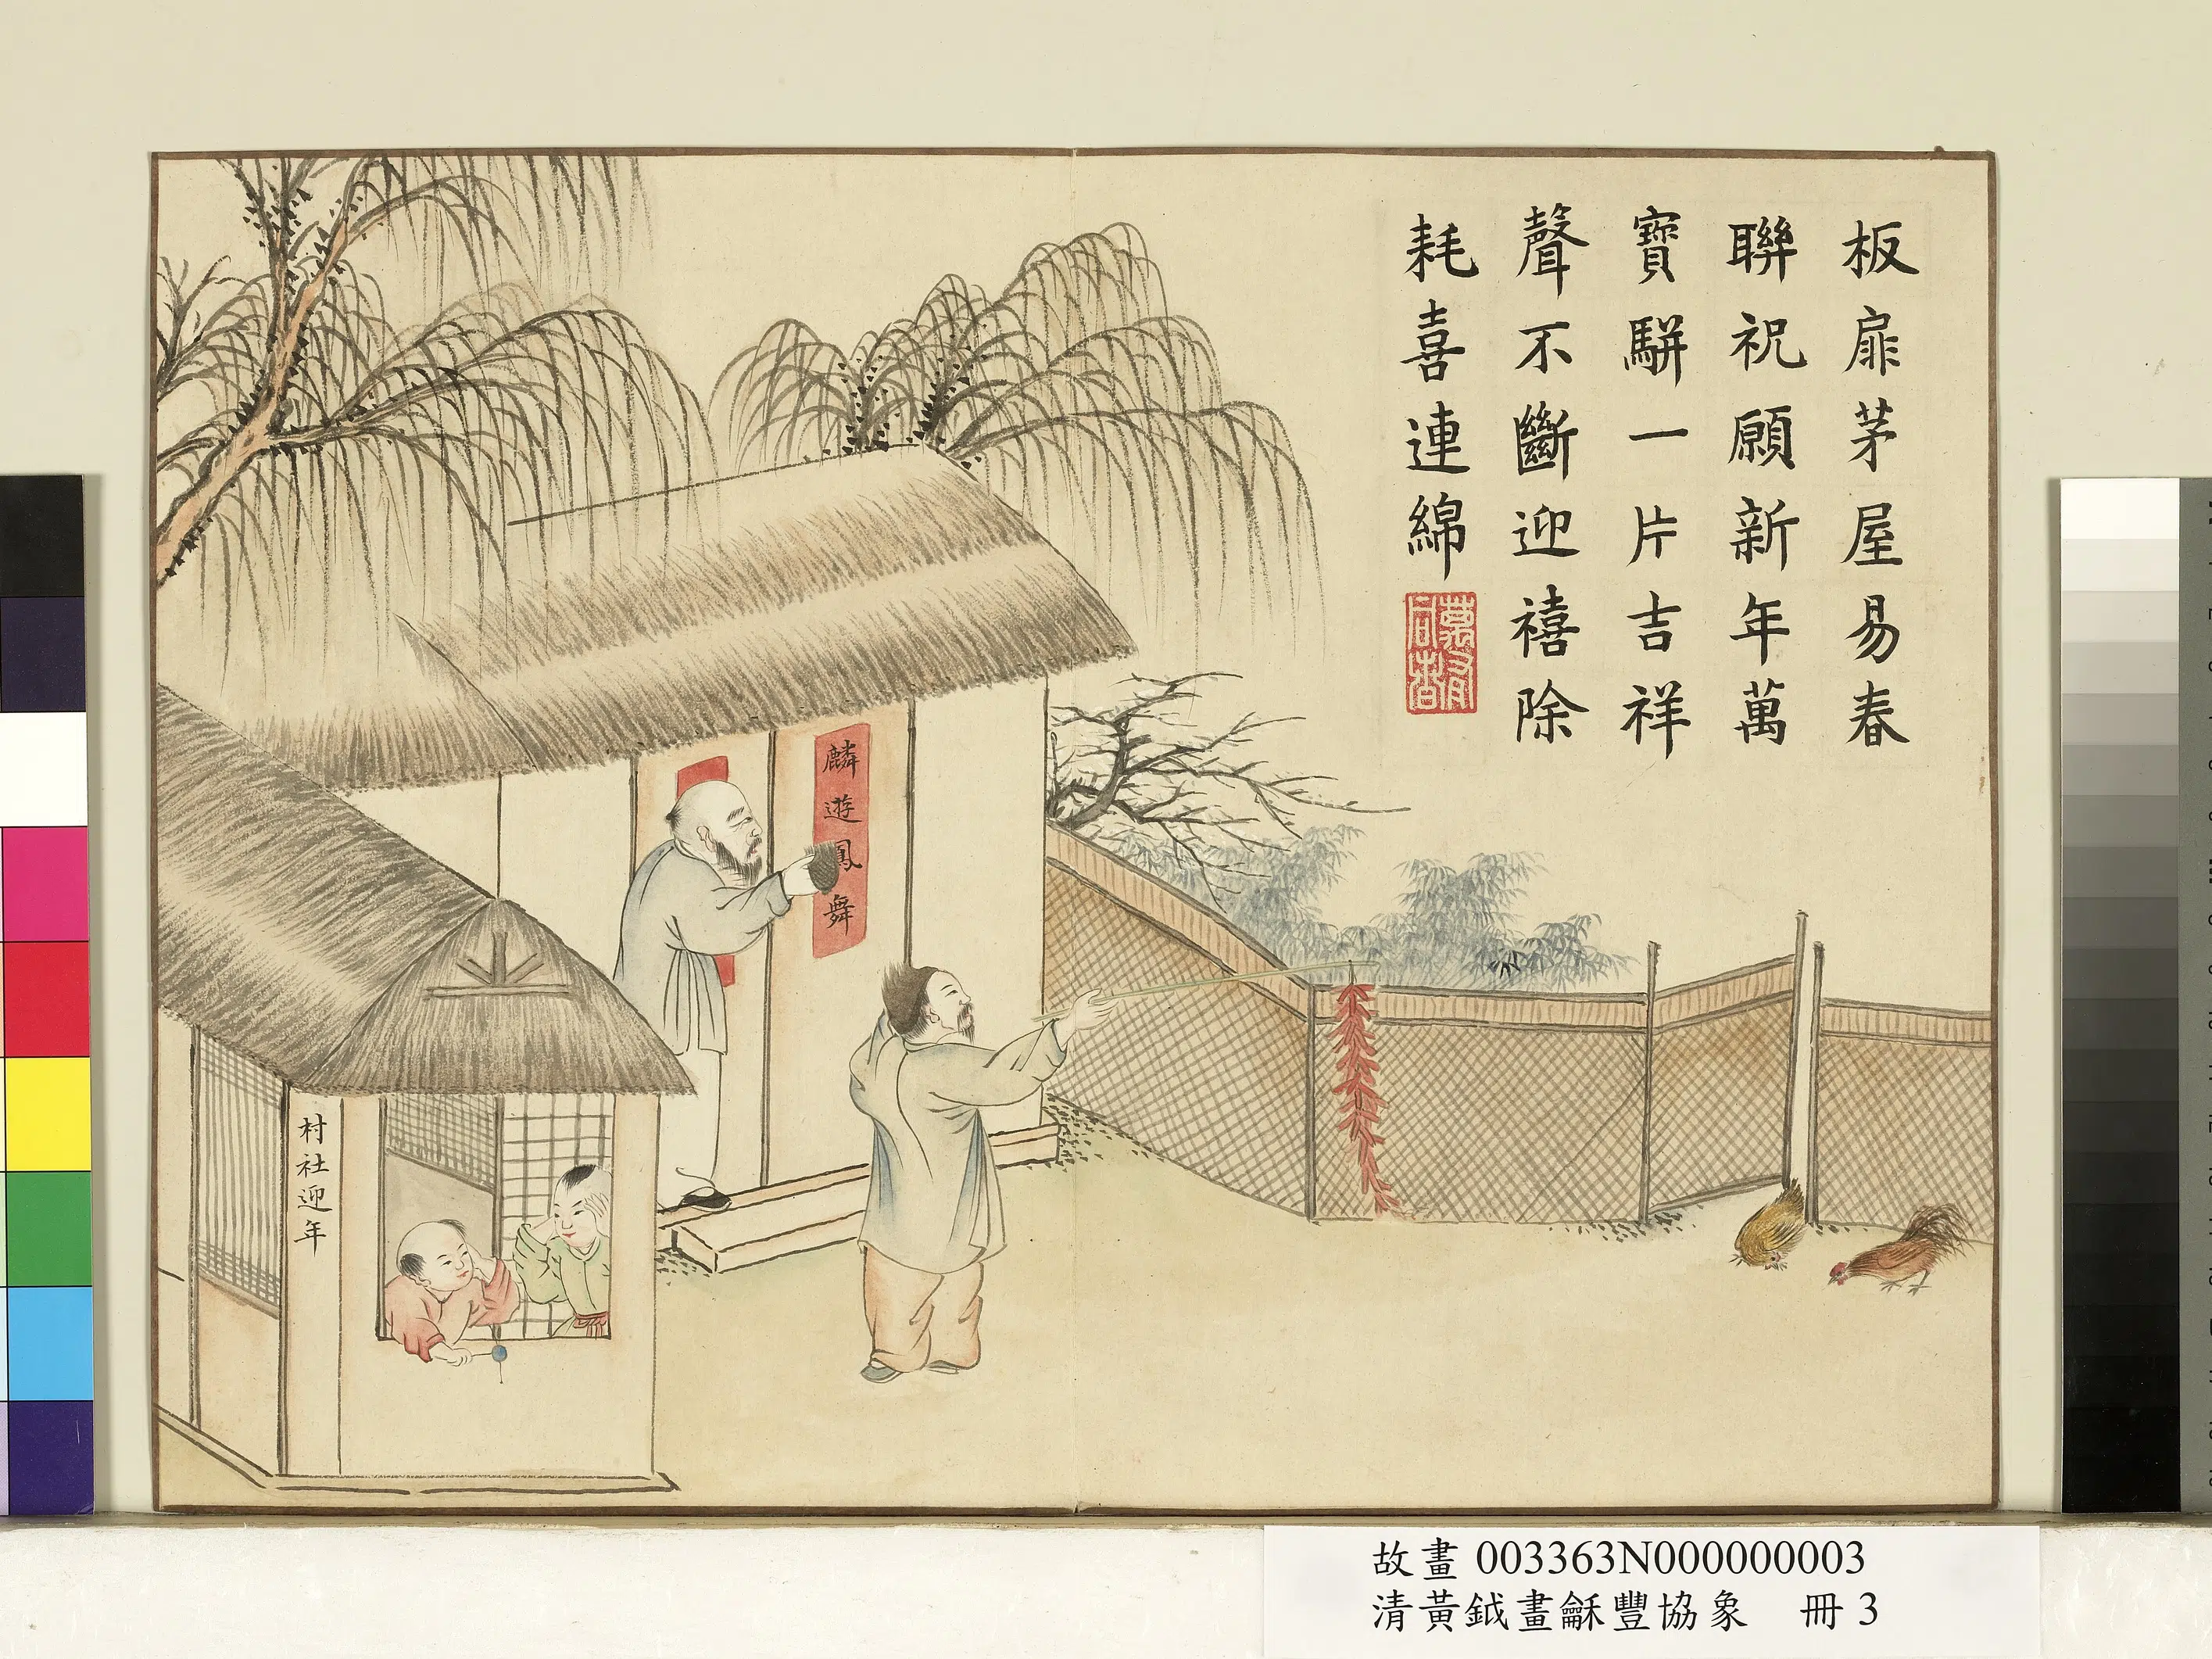 板扉茅屋易春
聯祝願新年萬
寶駢一片吉祥
聲不斷迎禧除
耗喜連綿
麟遊鳳舞
村社迎年
故畫 003363N000000003
清黃鉞畫龢豐協象 冊 3